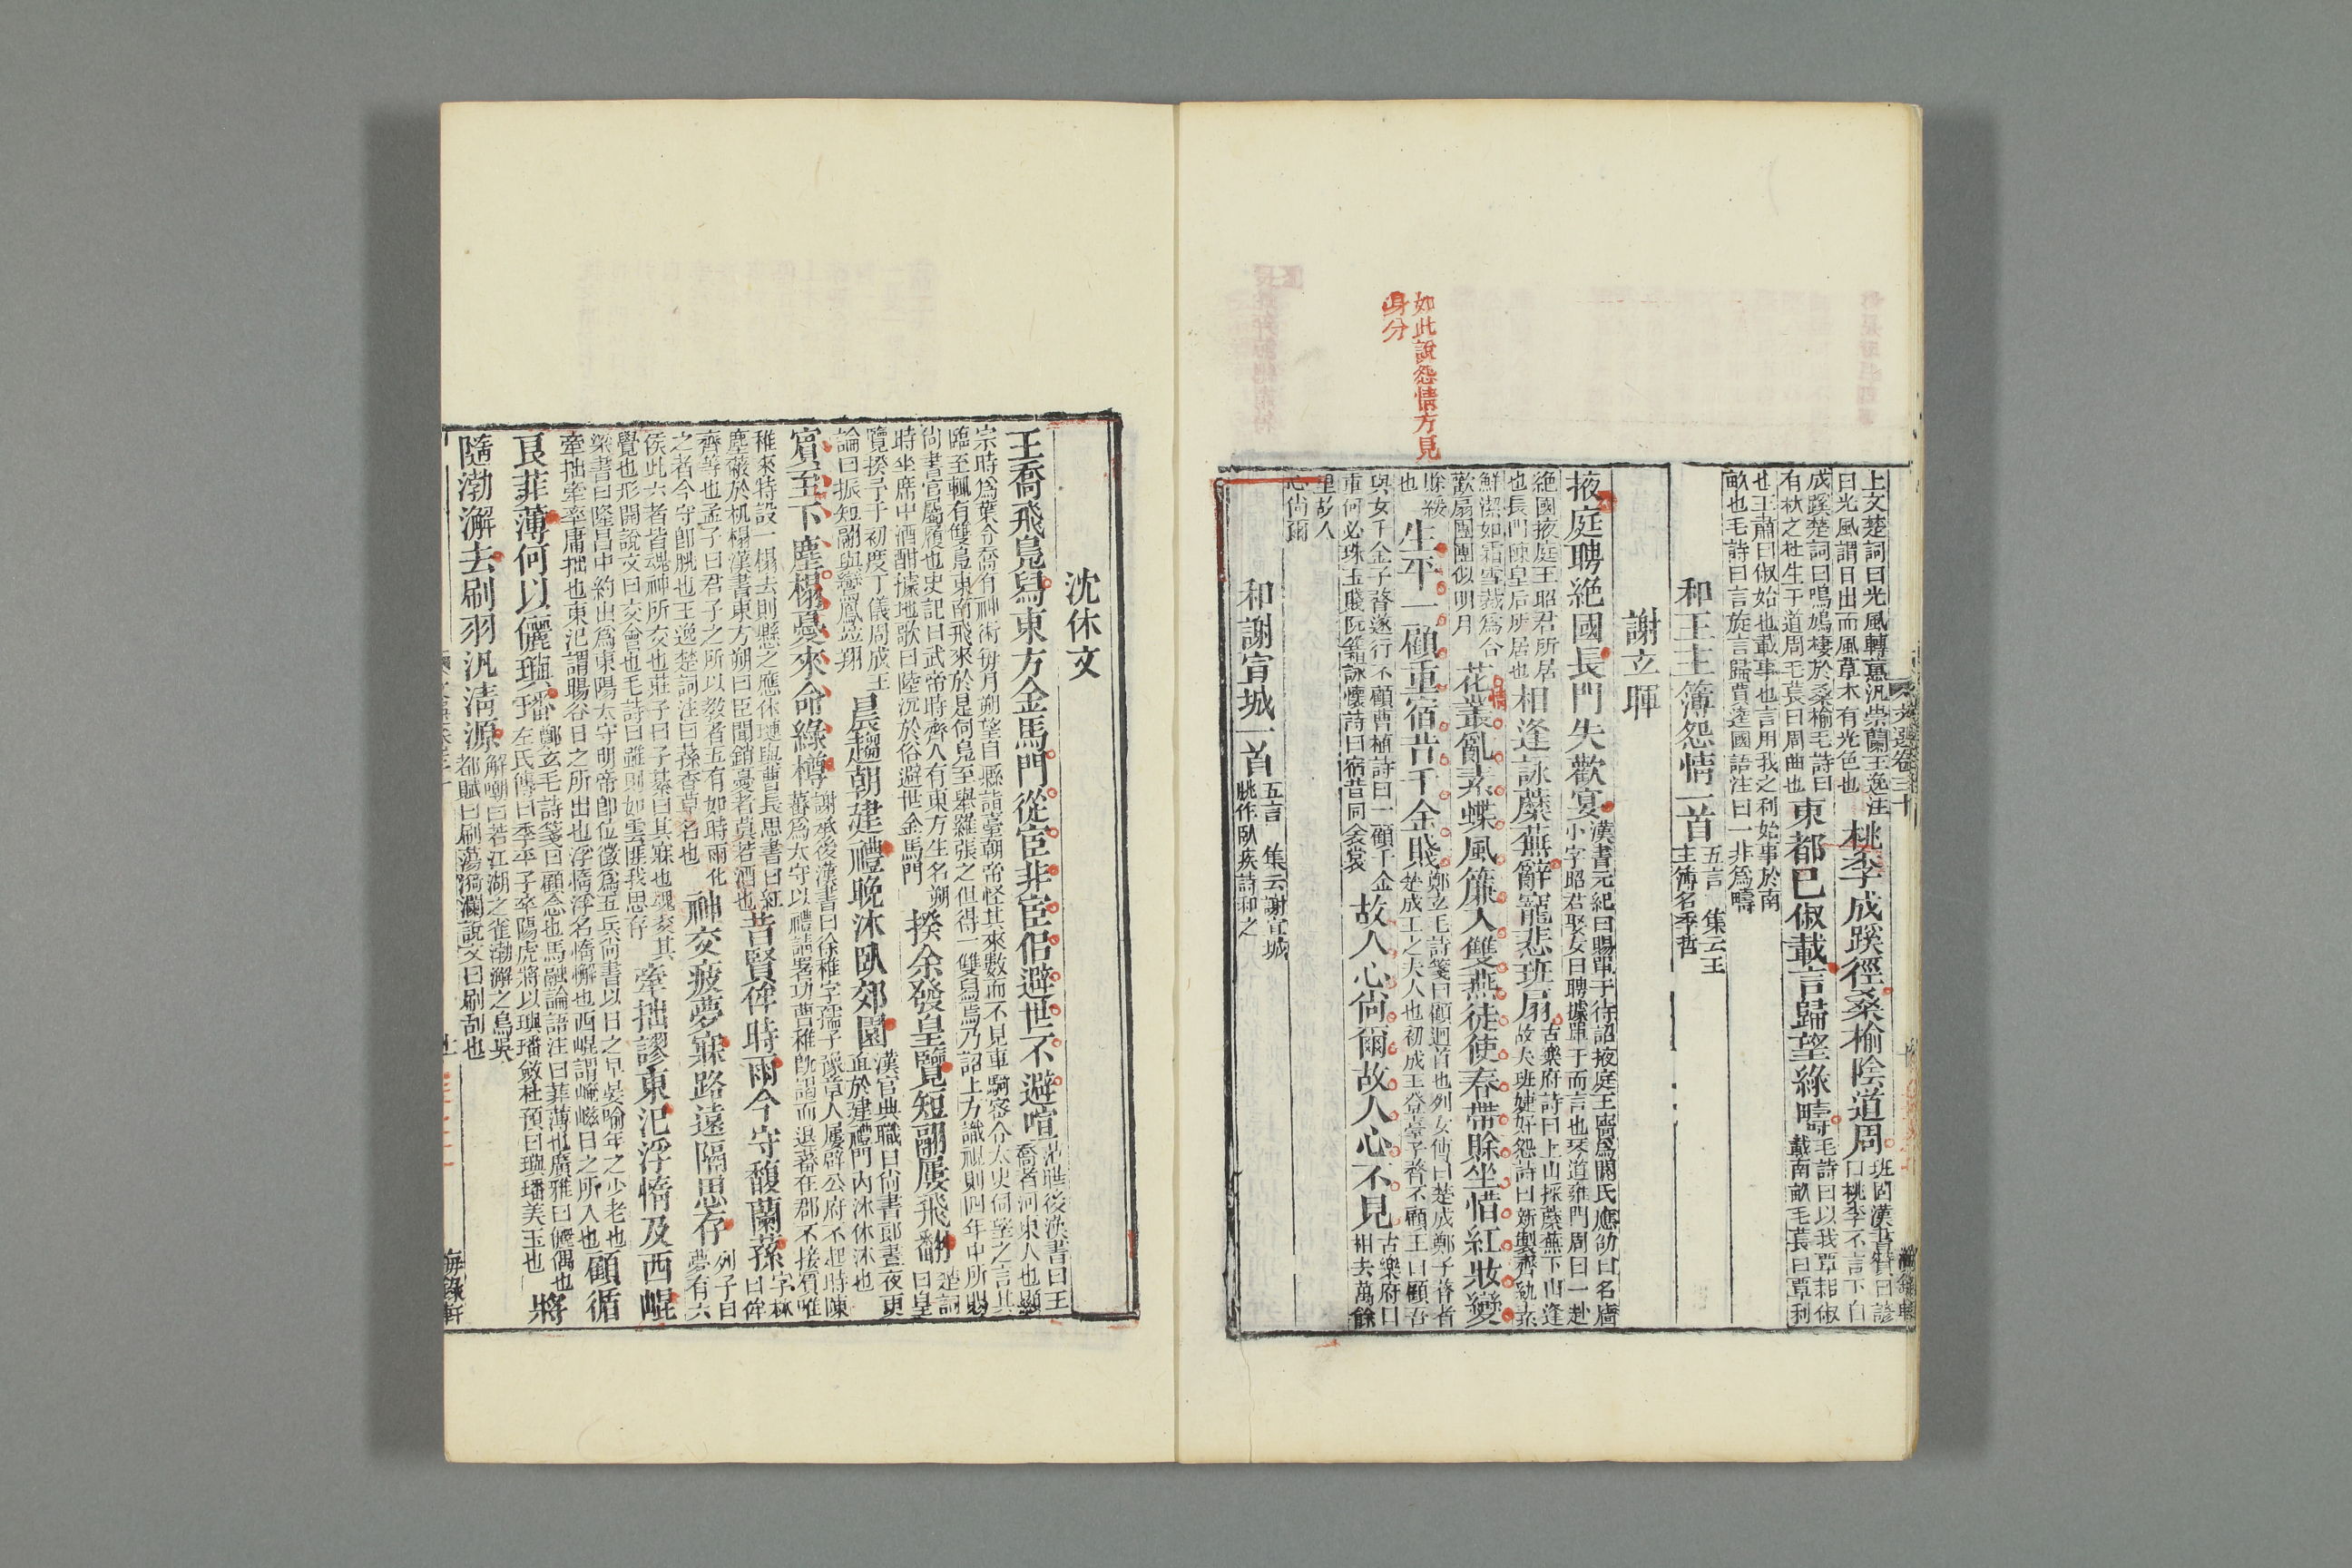 如此說怨情方見
身分
上文楚詞曰光風轉蕙汎崇蘭王逸注
曰光風謂日出而風草木有光色也
桃李成蹊徑桑榆陰道周
班固漢書贊曰諺
曰桃李不言下自
成蹊楚詞曰鳴鳩棲於桑榆毛詩曰
有杕之杜生于道周毛萇曰周曲也
東都已俶載言歸望綠疇
毛詩曰以我覃耜俶
載南畝毛萇曰覃利
也王肅曰俶始也載事也言用我之利始事於南
畝也毛詩曰言旋言歸賈逵國語注曰一井為疇
和王主簿怨情一首
五言 集云王
主簿名季哲
謝玄暉
掖庭聘絕國長門失歡宴
漢書元紀曰賜單于待詔掖庭王嬙為閼氏應劭曰名嬙
小字昭君娶女曰聘據單于而言也琴道雍門周曰一赴
絕國掖庭王昭君所居
也長門陳皇后所居也
相逢詠蘼蕪辭寵悲班扇
古樂府詩曰上山採蘼蕪下山逢
故夫班婕妤怨詩曰新製齊紈素
鮮潔如霜雪裁為合
歡扇團團似明月
花叢亂素蝶風簾入雙燕徒使春帶賒坐惜紅妝變
情
賒緩
也
生平一顧重宿昔千金賤
鄭玄毛詩箋曰顧迴首也列女傳曰楚成鄭子瞀者
楚成王之夫人也初成王登臺子瞀不顧王曰顧吾
與女千金子瞀遂行不顧曹植詩曰一顧千金
重何必珠玉賤阮籍詠懷詩曰宿昔同衾裳
故人心尚爾故人心不見
古樂府曰
相去萬餘
里故人
心尚爾
和謝宣城一首
五言 集云謝宣城
朓作臥疾詩和之
沈休文
王喬飛鳧舄東方金馬門從宦非宦侶避世不避喧
范曄後漢書曰王
喬者河東人也顯
宗時為葉令喬有神術每月朔望自縣詣臺朝帝怪其來數而不見車騎密令太史伺望之言其
臨至輒有雙鳧東南飛來於是伺鳧至舉羅張之但得一雙舄焉乃詔上方識視則四年中所賜
尚書官屬履也史記曰武帝時齊人有東方生名朔
時坐席中酒酣據地歌曰陸沉於俗避世金馬門
揆余發皇覽短翮屢飛翻
楚詞
曰皇
覽揆予于初度丁儀周成王
論曰振短翮與鸞鳳並翔
晨趨朝建禮晚沐臥郊園
漢官典職曰尚書郎晝夜更
直於建禮門內沐休沐也
賓至下塵榻憂來命綠樽
謝承後漢書曰徐稚字孺子豫章人屢辟公府不起時陳
蕃為太守以禮請署功曹稚既謁而退蕃在郡不接賓唯
稚來特設一榻去則縣之應休璉與曹長思書曰紅
塵蔽於机榻漢書東方朔曰臣聞銷憂者莫若酒也
昔賢侔時雨今守馥蘭蓀
字林
曰侔
齊等也孟子曰君子之所以教者五有如時雨化
之者今守即朓也王逸楚詞注曰蓀香草名也
神交疲夢寐路遠隔思存
列子曰
夢有六
侯此六者皆魂神所交也莊子曰子綦曰其寐也魂交其
覺也形開說文曰交會也毛詩曰雖則如雲匪我思存
牽拙謬東汜浮惰及西崐
梁書曰隆昌中約出為東陽太守明帝即位徵為五兵尚書以日之早晏喻年之少老也
牽拙牽率庸拙也東汜謂暘谷日之所出也浮惰浮名惰懈也西崐謂崦嵫日之所入也
顧循
良菲薄何以儷璵璠
鄭玄毛詩箋曰顧念也馬融論語注曰菲薄也廣雅曰儷偶也
左氏傳曰季平子卒陽虎將以璵璠斂杜預曰璵璠美玉也
將
隨渤澥去刷羽汎清源
解嘲曰若江湖之雀渤澥之鳥吳
都賦曰刷蕩漪瀾說文曰刷刮也
文選卷三十
海錄軒